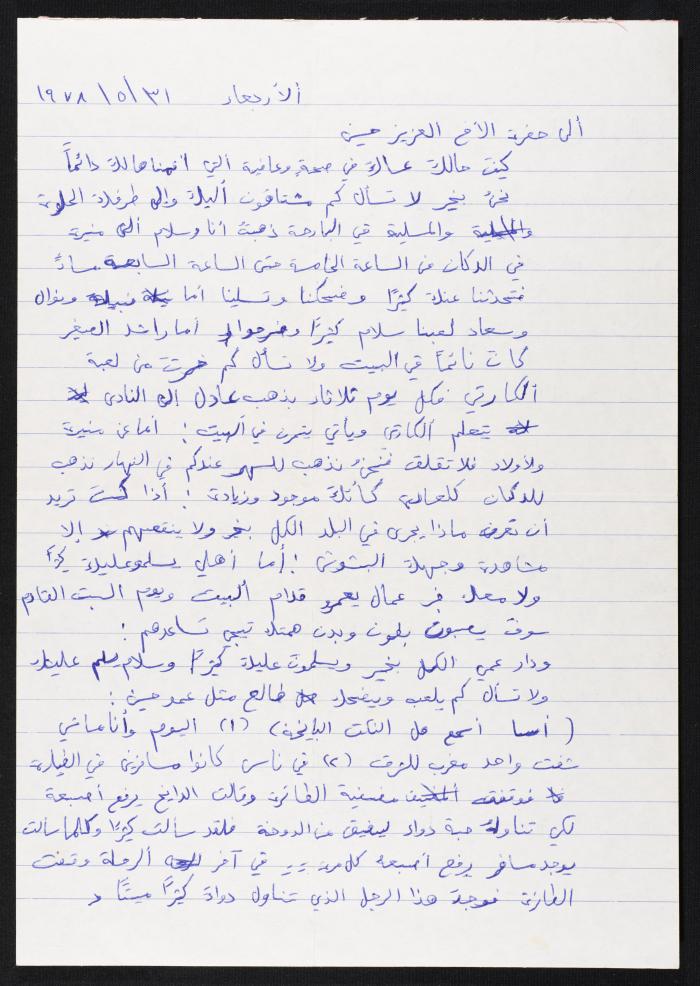 الأربعاء ٣١/٥/١٩٧٨
ألى حضرة الأخ العزيز حسين
كيف حالك عساك في صحة وعافية ألتي أتمناها لك دائماً
نحن بخير لا تسأل كم مشتاقون أليك وإلى طرفك الحلوة
والمسلية في البارحة ذهبت أنا وسلام ألى منيرة
في الدكان من الساعة الخامسة حتى الساعة السابعة مساءً
فتحدثنا عنك كثيرًا وضحكنا وتسلينا أما نبيلة ونوال
وسعاد لعبنا سلام كثيرًا أما راشد الصغير
كان نائماً في البيت ولا تسأل كم من لعبة
ألكارتي فكل يوم ثلاثاء يذهب عادل إلى النادي
يتعلم ألكارتي ويأتي يتمرن في ألبيت ! أما عن منيرة
ولأولاد فلا تقلق فنحن نذهب للسهر عندكم في النهار نذهب
للدكان كلعادة كأنك موجود وزيادة ! أذا كنت تريد
أن تعرف ماذا يجري في البلد الكل بخير ولا ينقصهم إلا
مشاهدة وجهك البشوش ! أما أهلي يسلموعليك كثيرًا
عمال يعمرو قدام ألبيت ويوم السبت القادم
سوف يصبون بطون وبدن همتك تيجي تساعدهم !
ودار عمي الكل بخير ويسلمون عليك كثيرًا وسلام يسلم عليك
ولا تسأل كم يلعب ويضحك طالع مثل عمه حسين !
( أسمع هل النكت البايخة ) (١) اليوم وأنا ماشي
شفت واحد مغرب للشرق (٢) في ناس كانوا مسافرين في الطيارة
فوقفت مضيفة الطائرة وقالت الدايخ يرفع أصبعة
لكي تناوله حبة دواء ليفيق من الدوخة فلقد سألت كثيرًا وكلما سألت
يوجد مسافر يرفع أصبعه كل مرة .. في آخر ألرحلة وقفت
الطائرة فوجد هذا الرجل الذي تناول دواء كثيرًا ميتًا و